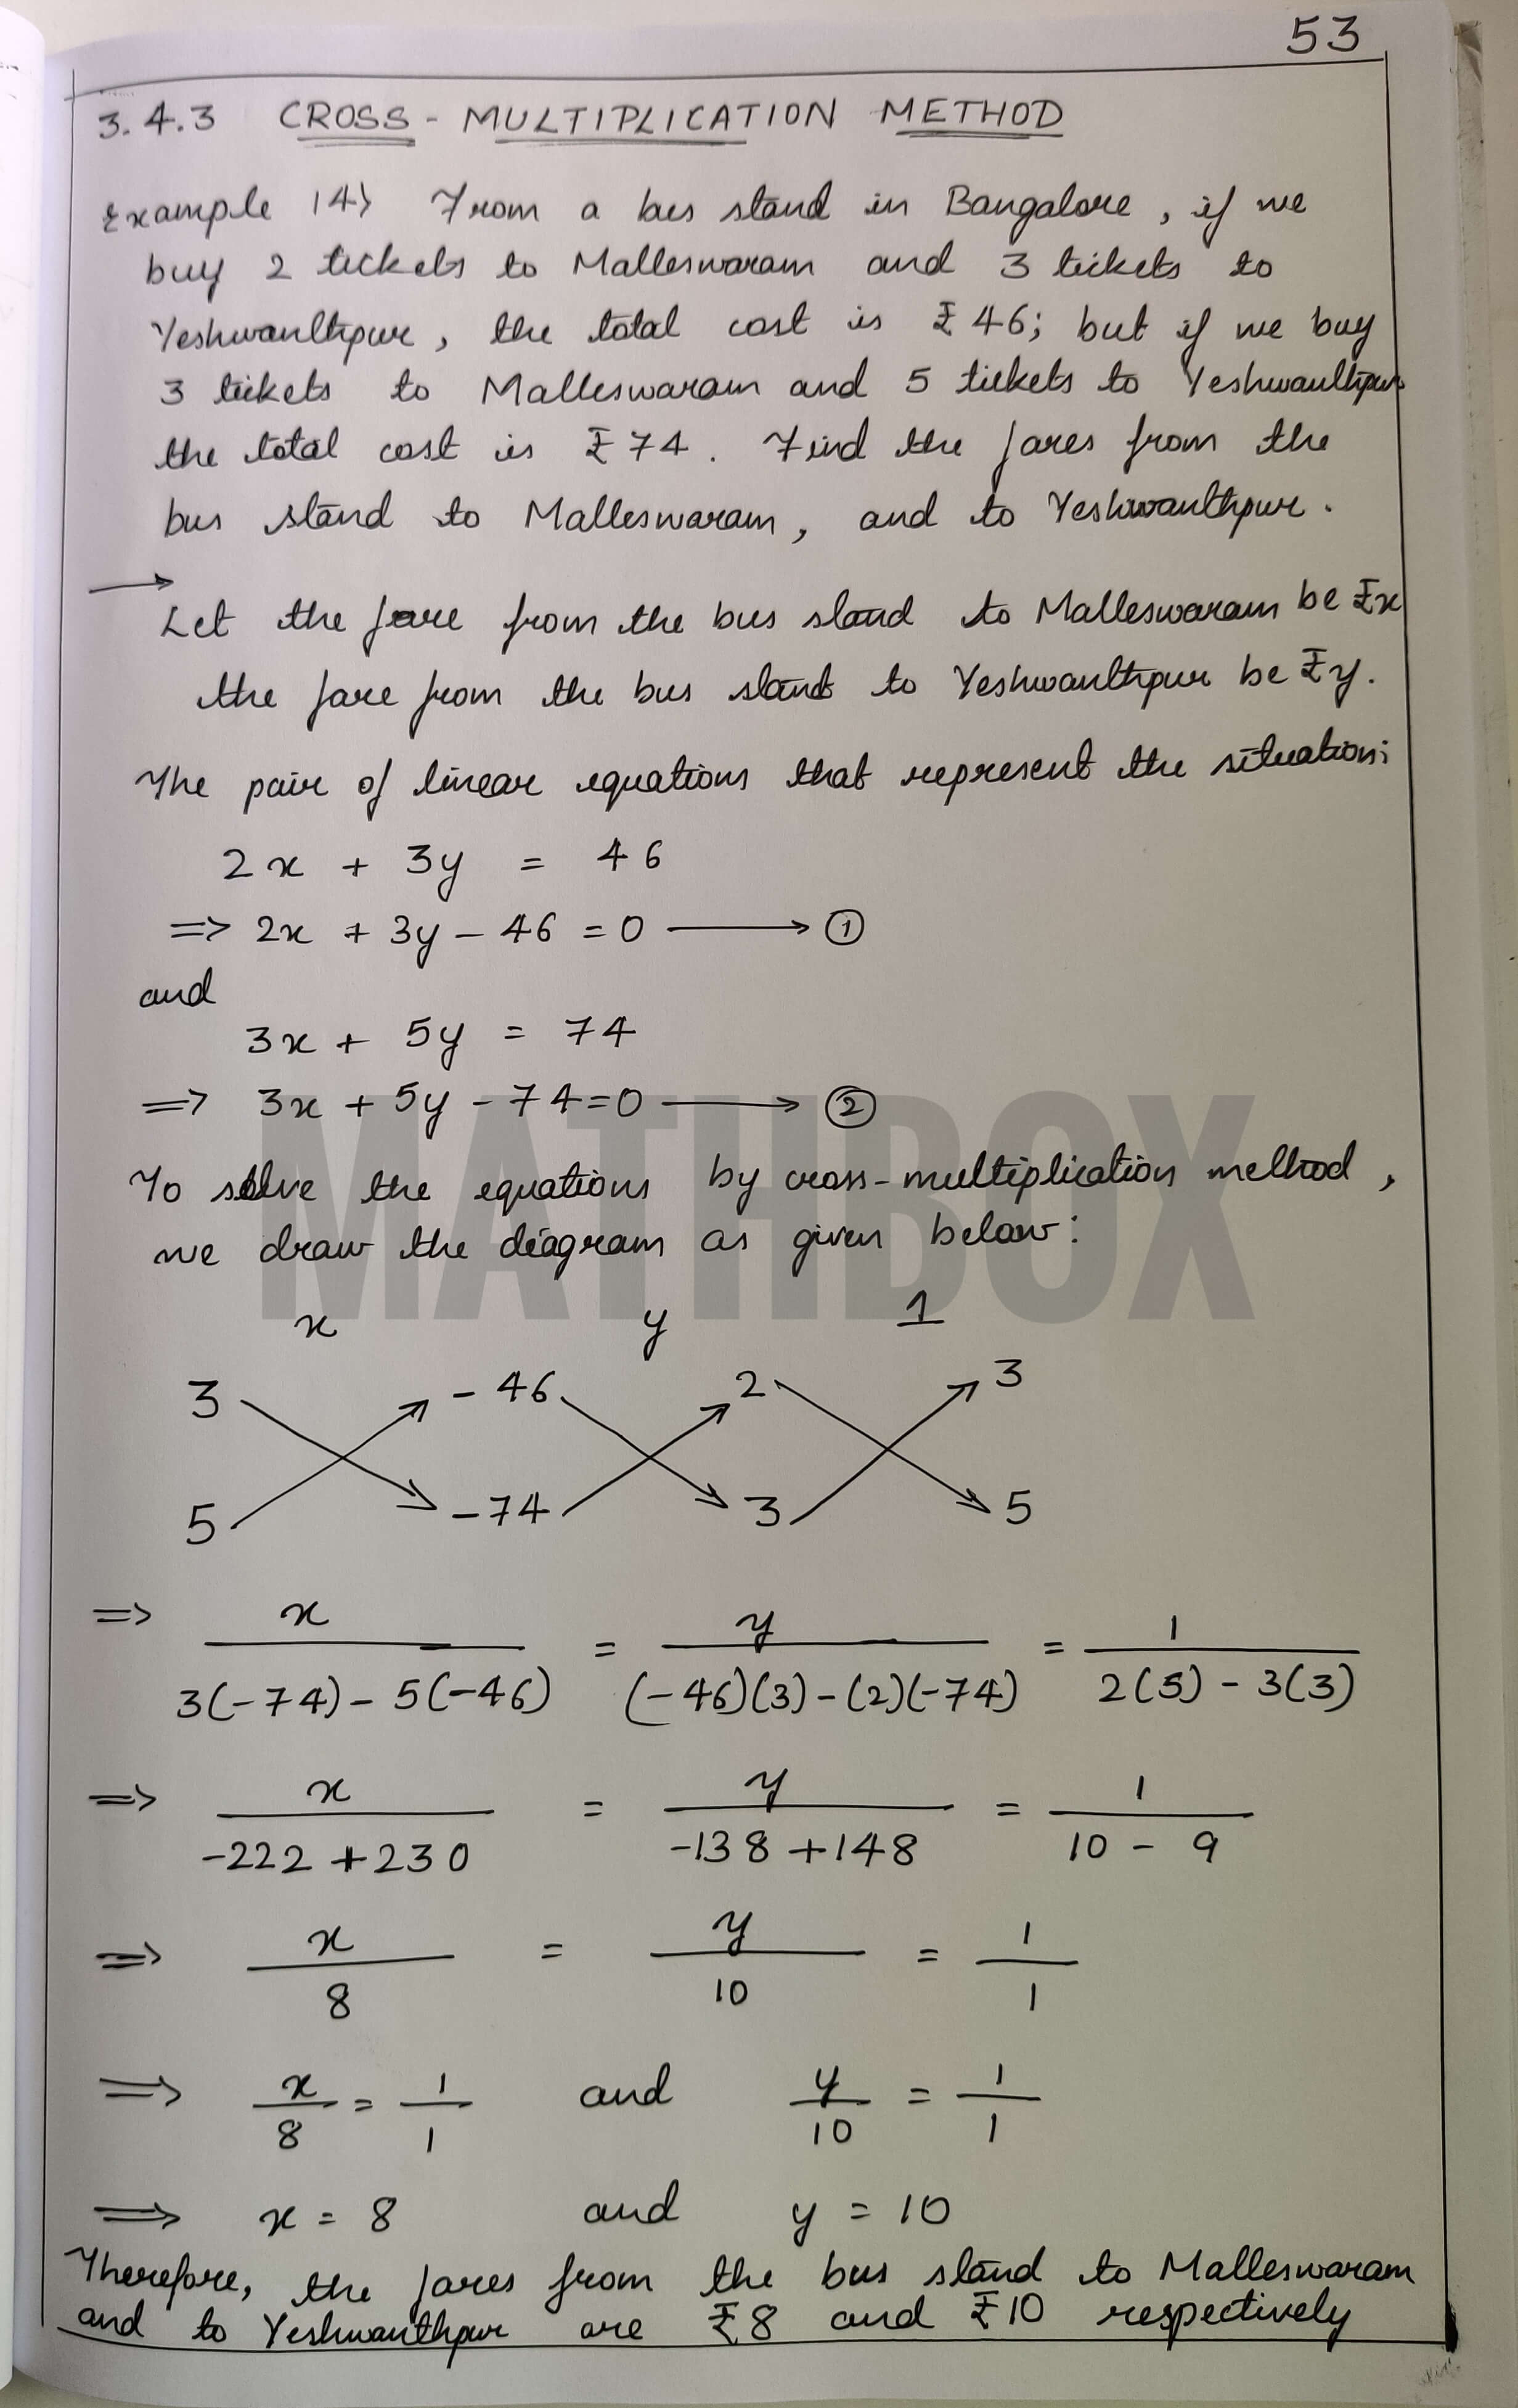 53
3.4.3 CROSS - MULTIPLICATION METHOD
Example 14) From a bus stand in Bangalore, if we
buy 2 tickets to Malleswaram and 3 tickets to
Yeshwanthpur, the total cost is ₹ 46; but if we buy
3 tickets to Malleswaram and 5 tickets to Yeshwanthpur
the total cost is ₹ 74. Find the fares from the
bus stand to Malleswaram, and to Yeshwanthpur.
→
Let the fare from the bus stand to Malleswaram be ₹x
the fare from the bus stand to Yeshwanthpur be ₹y.
The pair of linear equations that represent the situation:
2x + 3y = 46
=> 2x + 3y - 46 = 0 ⟶ ①
and
3x + 5y = 74
=> 3x + 5y - 74 = 0 ⟶ ②
MATHBOX
To solve the equations by cross-multiplication method,
we draw the diagram as given below:
x y 1
3 -46 2 3
5 -74 3 5
=> x / 3(-74) - 5(-46) = y / (-46)(3) - (2)(-74) = 1 / 2(5) - 3(3)
=> x / -222 + 230 = y / -138 + 148 = 1 / 10 - 9
=> x / 8 = y / 10 = 1 / 1
=> x / 8 = 1 / 1 and y / 10 = 1 / 1
=> x = 8 and y = 10
Therefore, the fares from the bus stand to Malleswaram
and to Yeshwanthpur are ₹8 and ₹10 respectively